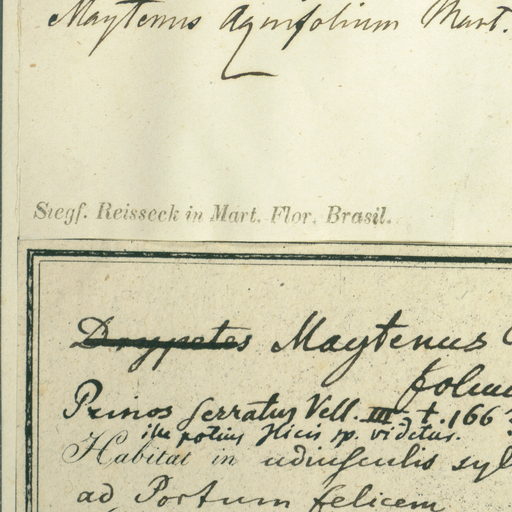 Maytenus Aquifolium Mart.
Siegf. Reisseck in Mart. Flor. Brasil.
Drypetes Maytenus
folium
Prinos serratus Vell. III. t. 166
ille potius Ilicis sp. videtur.
Habitat in udiusculis syl
ad Portum felicem